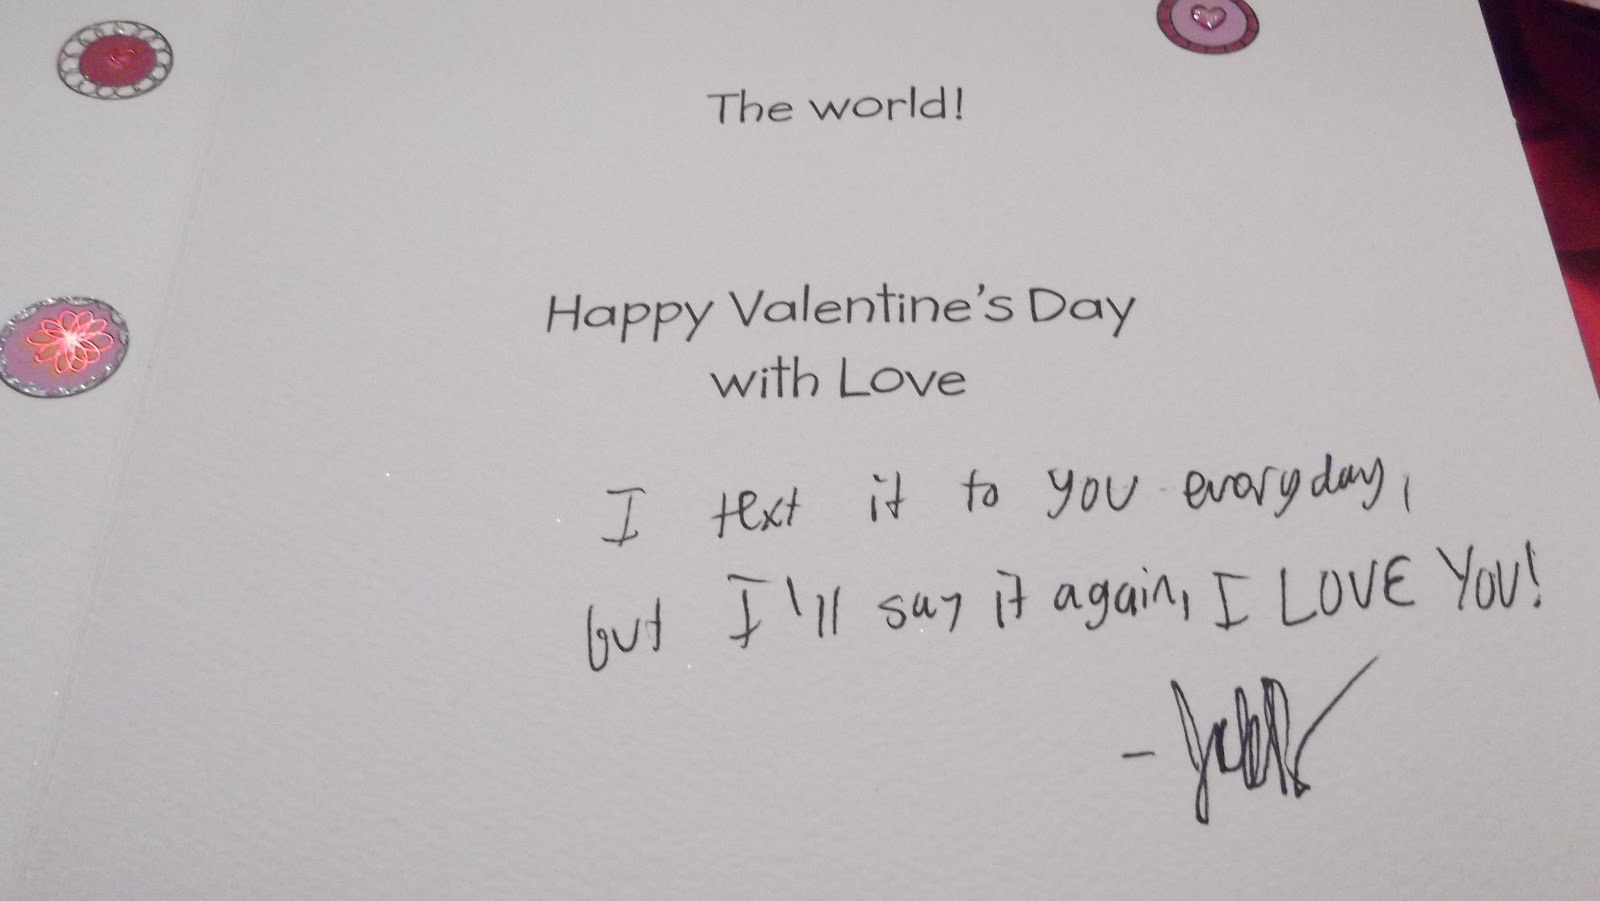 The world!
Happy Valentine's Day
with Love
I text it to you everyday,
but I'll say it again, I LOVE YOU!